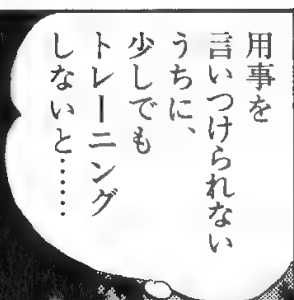 用事を
言いつけられない
うちに、
少しでも
トレーニング
しないと……